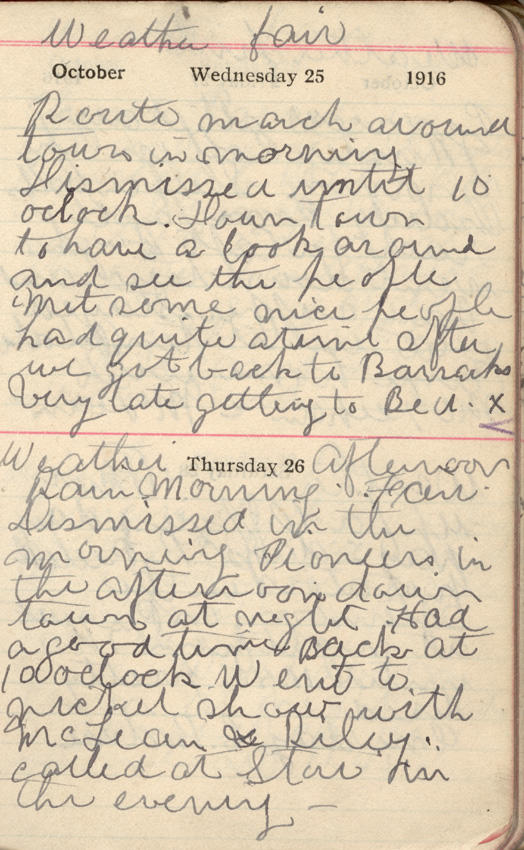 Weather fair
October Wednesday 25 1916
Route march around
town in morning
Dismissed until 10
oclock. Down Town
to have a look around
and see the people
Met some nice people
had quite a time after
we got back to Barracks
Very late getting to Bed. x
Weather Thursday 26 Afternoon
Rain Morning. Fair.
Dismissed in the
morning Pioneers in
the afternoon down
town at night. Had
a good time. Back at
10 oclock Went to
nickel show with
McLean & Riley.
called at Star Inn
the evening –